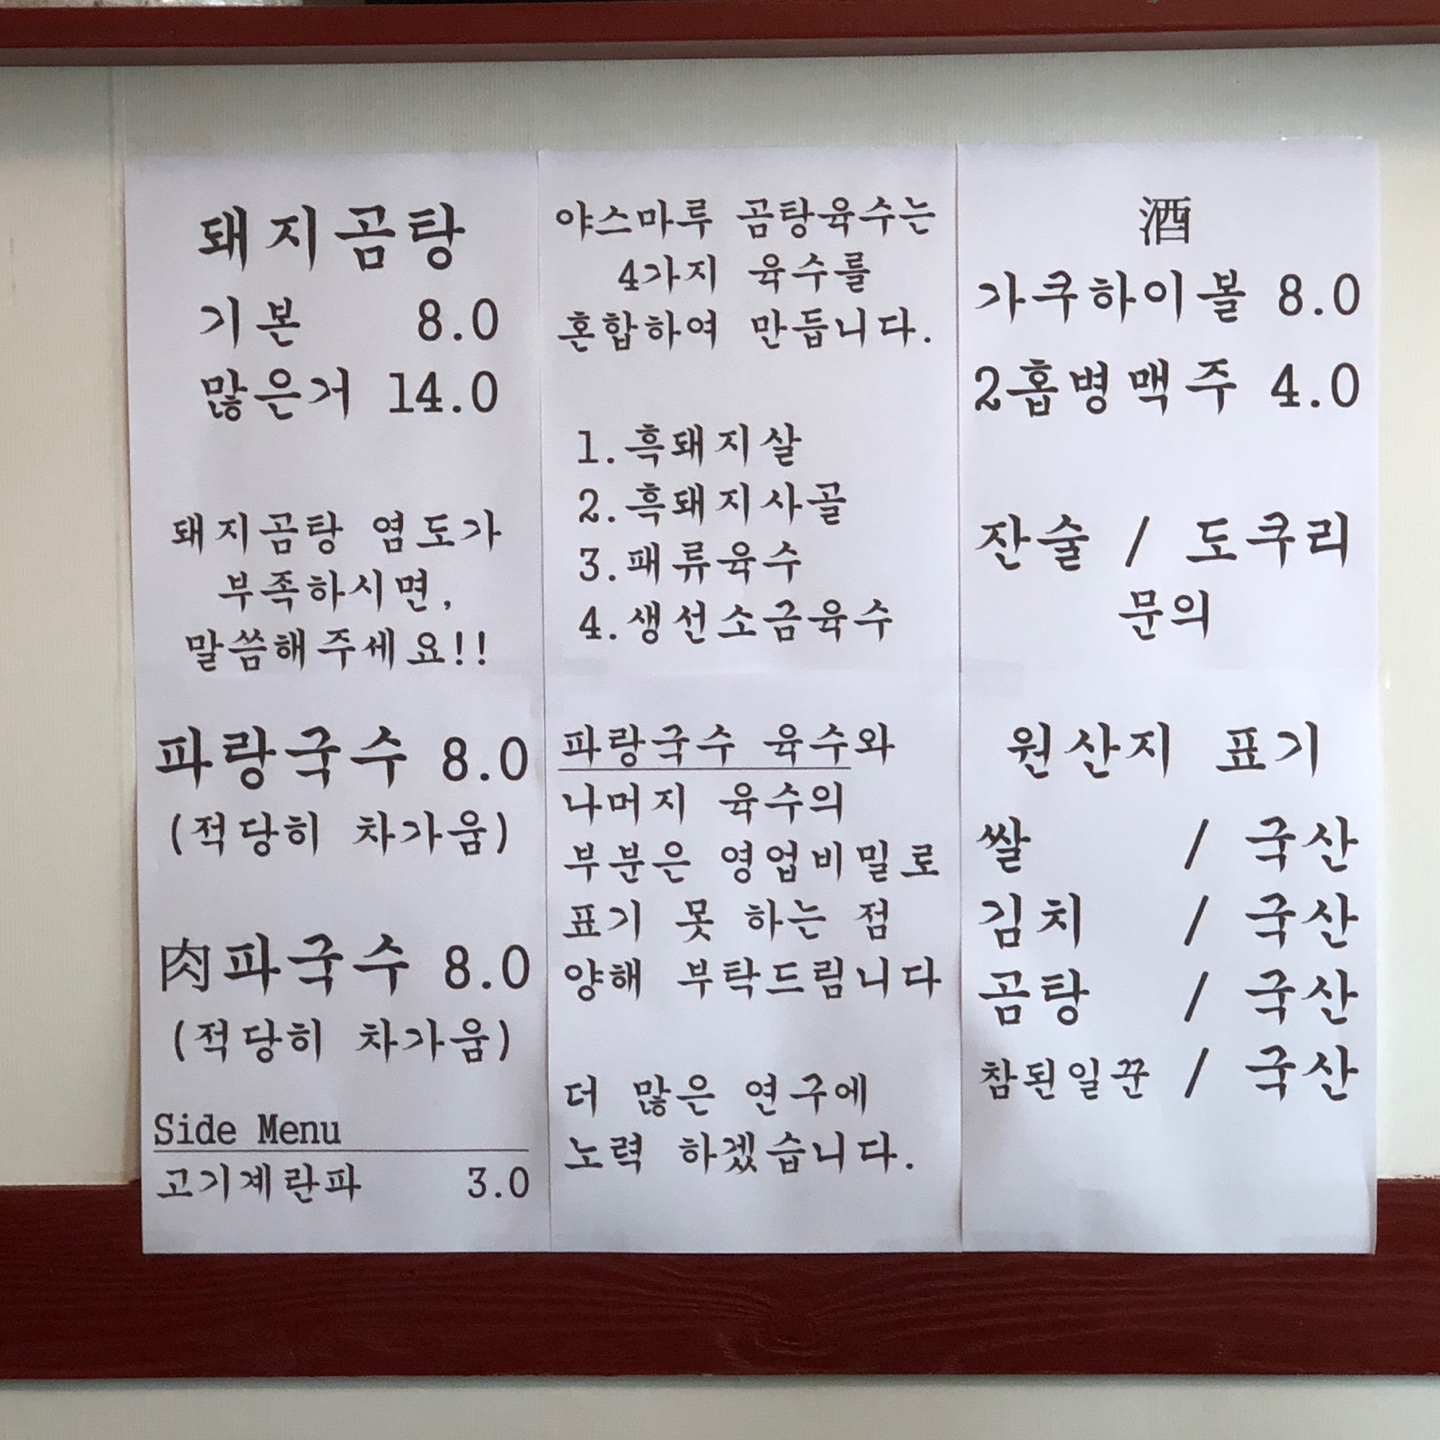 돼지곰탕
기본 8.0
많은거 14.0
돼지곰탕 염도가
부족하시면,
말씀해주세요!!
파랑국수 8.0
(적당히 차가움)
肉파국수 8.0
(적당히 차가움)
Side Menu
고기계란파 3.0
야스마루 곰탕육수는
4가지 육수를
혼합하여 만듭니다.
1.흑돼지살
2.흑돼지사골
3.패류육수
4.생선소금육수
파랑국수 육수와
나머지 육수의
부분은 영업비밀로
표기 못 하는 점
양해 부탁드림니다
더 많은 연구에
노력 하겠습니다.
酒
가쿠하이볼 8.0
2홉병맥주 4.0
잔술 / 도쿠리
문의
원산지 표기
쌀 / 국산
김치 / 국산
곰탕 / 국산
참된일꾼 / 국산